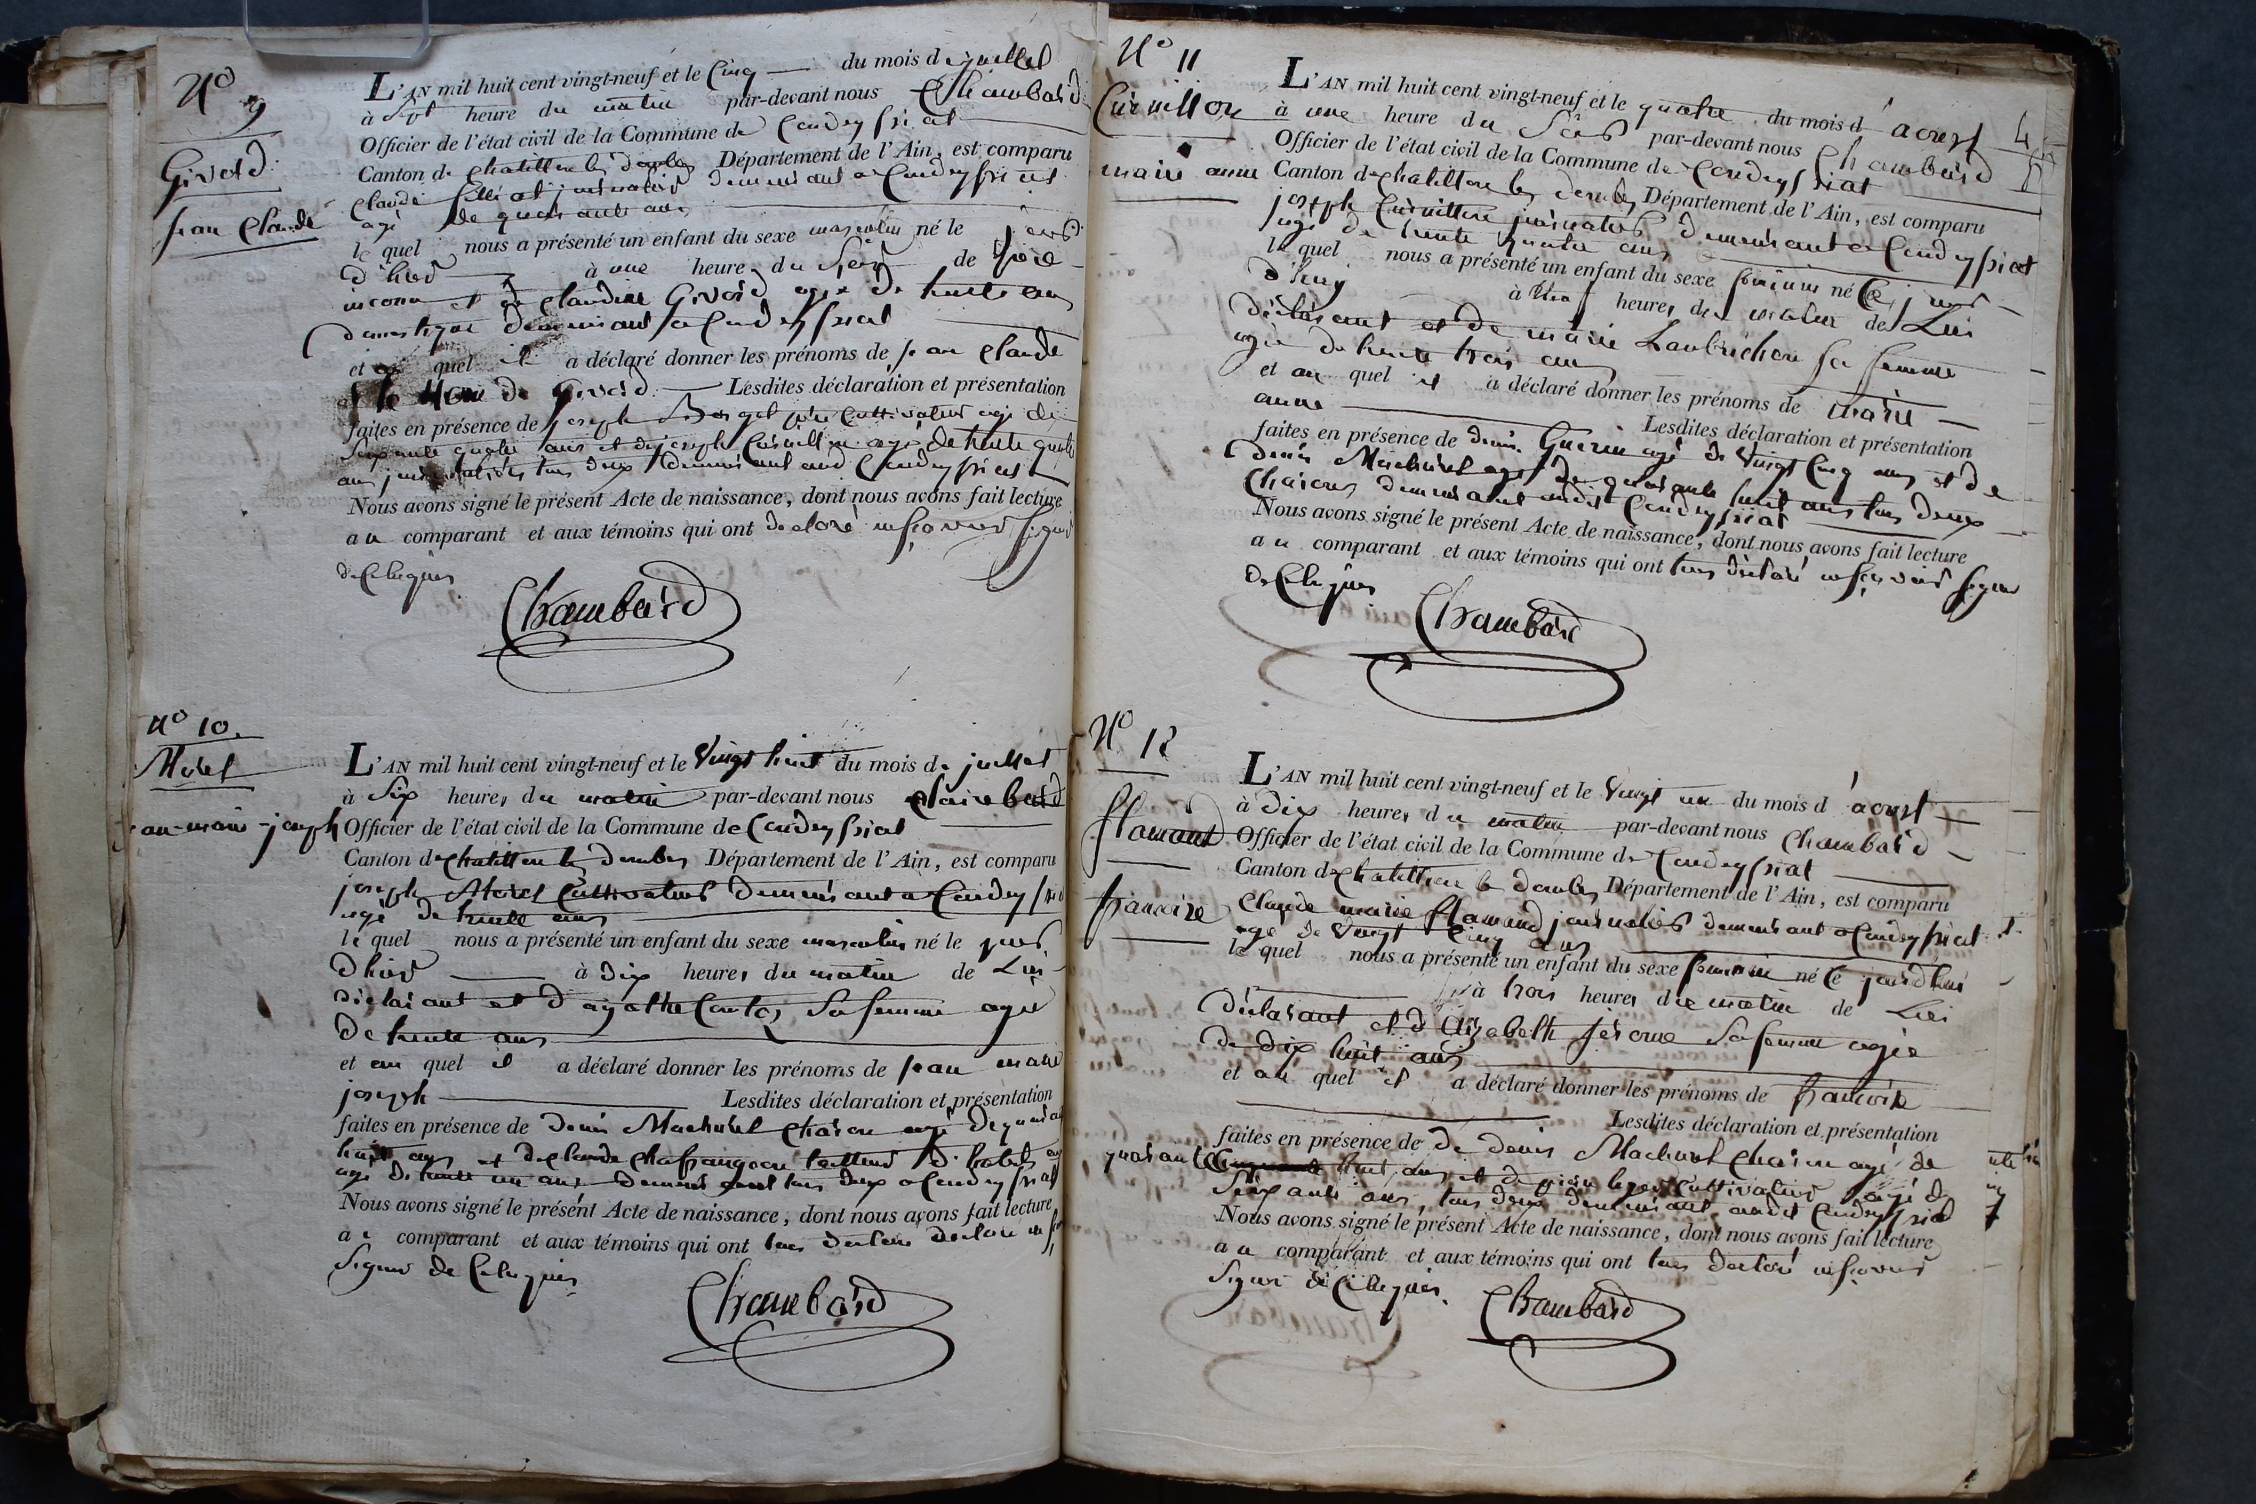 N° 9
Girord
jean Claude
L'AN mil huit cent vingt-neuf et le Cinq du mois de juillet
à Sept heure du matin par-devant nous Chambard
Officier de l'état civil de la Commune de Condeyssiat
Canton de chatillon les dombes Département de l'Ain, est comparu
Claude journalier demeurant a Condeyssiat
agé de quarante ans
le quel nous a présenté un enfant du sexe masculin né le jour
d'hier à une heure du Soir de Père
inconu et de Claudine Girord agée de trente ans
domestique demeurant a Condeyssiat
et au quel il a déclaré donner les prénoms de jean Claude
et le Nom de Girord Lesdites déclaration et présentation
faites en présence de joseph père Cultivateur agé de
Soixante quatre ans et de joseph Curnillon agé de trente quatre
ans journaliers tous deux demeurant audit Condeyssiat
Nous avons signé le présent Acte de naissance, dont nous avons fait lecture
au comparant et aux témoins qui ont declaré ne savoir signer
de Ce Requis
Chambard
N° 10.
Morel
jean-marie-joseph
L'AN mil huit cent vingt-neuf et le Vingt huit du mois de juillet
à Six heures du matin par-devant nous
Officier de l'état civil de la Commune de Condeyssiat
Canton de chatillon les dombes Département de l'Ain, est comparu
joseph Morel Cultivateur demeurant a Condeyssiat
agé de trente ans
le quel nous a présenté un enfant du sexe masculin né le jour
d'hier à dix heures du matin de Lui
déclarant et d'agathe Sa femme agée
de trente ans
et au quel il a déclaré donner les prénoms de jean marie
joseph Lesdites déclaration et présentation
faites en présence de denis Machurel Charon agé de quarante
huit ans et de Claude Chafrangeon tailleur d'habits
agé de trente un ans demeurant tous deux a Condeyssiat
Nous avons signé le présent Acte de naissance, dont nous avons fait lecture
au comparant et aux témoins qui ont tous declaré declaré ne
Signer de Ce Requis
Chambard
N° 11
Curnillon
marie anne
L'AN mil huit cent vingt-neuf et le quatre du mois d'aoust
à une heure du Soir par-devant nous Chambard
Officier de l'état civil de la Commune de Condeyssiat
Canton de chatillon les dombes Département de l'Ain, est comparu
joseph Curnillon journalier demeurant a Condeyssiat
agé de trente quatre ans
le quel nous a présenté un enfant du sexe féminin né Ce jour
d'huy à heures du matin de Lui
déclarant et de marie Laubrichon Sa femme
agée de trente trois ans
et au quel il a déclaré donner les prénoms de marie
anne Lesdites déclaration et présentation
faites en présence de denis Guerin agé de Vingt Cinq ans et de
denis Machurel agé de quarante huit ans tous deux
Charons demeurant audit Condeyssiat
Nous avons signé le présent Acte de naissance, dont nous avons fait lecture
au comparant et aux témoins qui ont tous déclaré ne savoir signer
de Ce Requis
Chambard
N° 12
flamand
francoise
L'AN mil huit cent vingt-neuf et le Vingt un du mois d'aoust
à dix heures du matin par-devant nous Chambard
Officier de l'état civil de la Commune de Condeyssiat
Canton de chatillon les dombes Département de l'Ain, est comparu
Claude marie flamand journalier demeurant a Condeyssiat
agé de Vingt Cinq ans
le quel nous a présenté un enfant du sexe feminin né Ce jourd'hui
à trois heures du matin de Lui
déclarant et d'Elizabeth jérome Sa femme agée
de dix huit ans
et au quel il a déclaré donner les prénoms de francoise
Lesdites déclaration et présentation
faites en présence de de denis Machurel Charon agé de
quarante huit ans et de Cultivateur agé de
Soixante ans, tous deux demeurant audit Condeyssiat
Nous avons signé le présent Acte de naissance, dont nous avons fait lecture
au comparant et aux témoins qui ont tous declaré ne savoir
Signer de Ce Requis.
Chambard